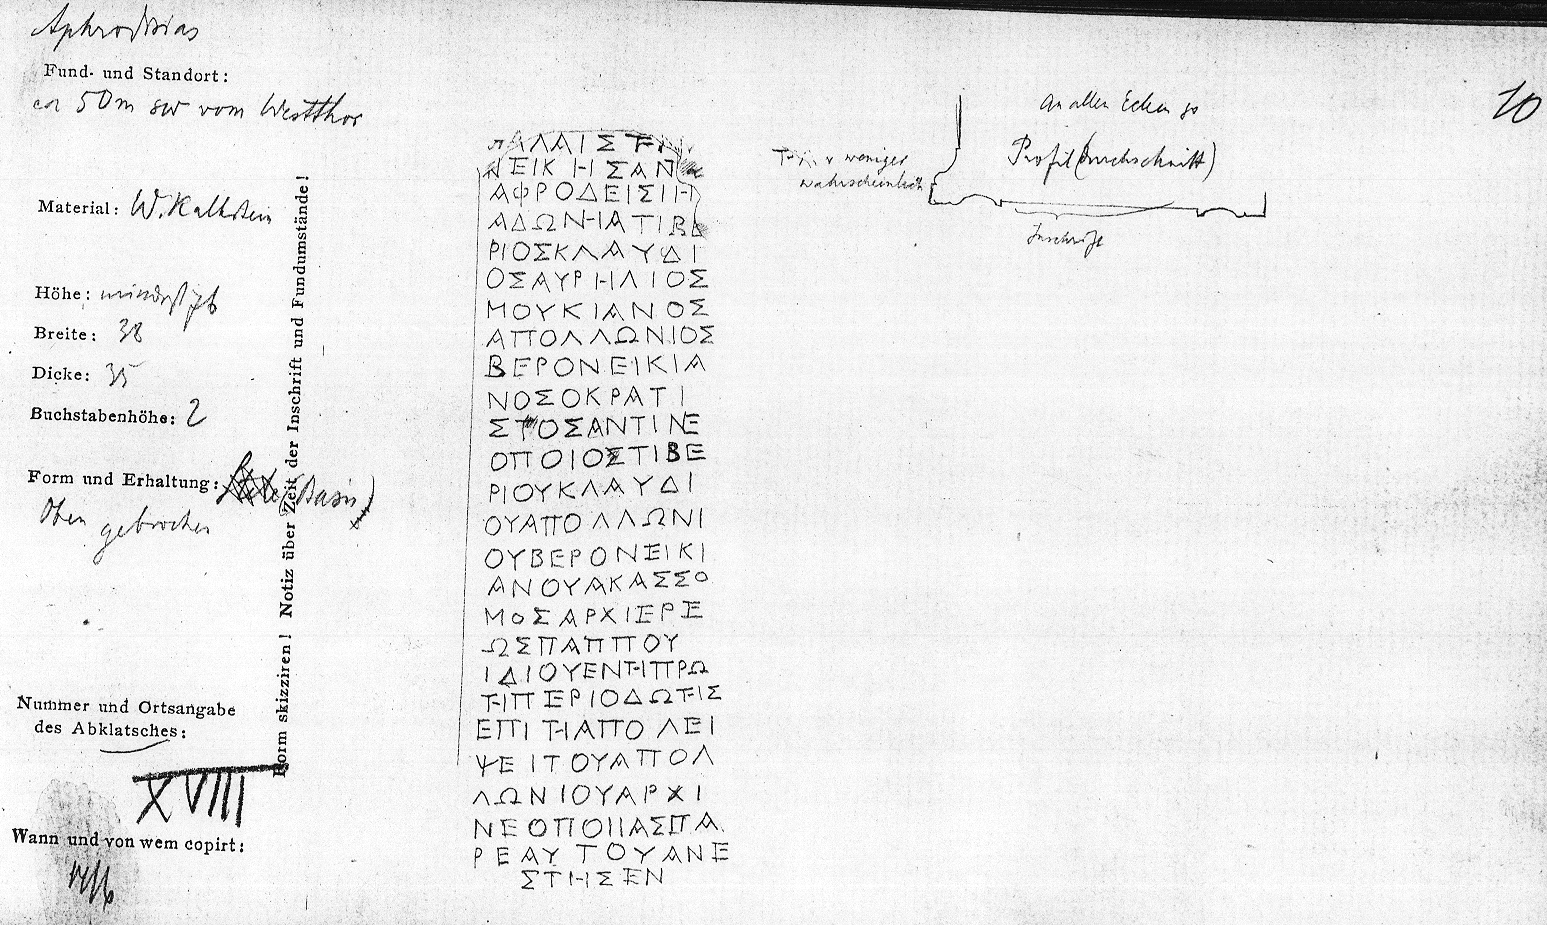 Aphrodisias
Fund- und Standort:
ca 50m sw vom Westthor
Material: W. Kalkstein
Höhe:
Breite: 38
Dicke: 35
Buchstabenhöhe: 2
Form und Erhaltung: (Basis)
Oben gebrochen
Nummer und Ortsangabe
des Abklatsches:
XVIII
Wann und von wem copirt:
Form skizziren! Notiz über Zeit der Inschrift und Fundumstände!
ΠΑΛΑΙΣΤΗ
ΝΕΙΚΗΣΑΝ
ΑΦΡΟΔΕΙΣΙΗ
ΑΔΩΝΗΑΤΙΒΕ
ΡΙΟΣΚΛΑΥΔΙ
ΟΣΑΥΡΗΛΙΟΣ
ΜΟΥΚΙΑΝΟΣ
ΑΠΟΛΛΩΝΙΟΣ
ΒΕΡΟΝΕΙΚΙΑ
ΝΟΣΟΚΡΑΤΙ
ΣΤΟΣΑΝΤΙΝΕ
ΟΠΟΙΟΣΤΙΒΕ
ΡΙΟΥΚΛΑΥΔΙ
ΟΥΑΠΟΛΛΩΝΙ
ΟΥΒΕΡΟΝΕΙΚΙ
ΑΝΟΥΑΚΑΣΣΟ
ΜΟΣΑΡΧΙΕΡΕ
ΩΣΠΑΠΠΟΥ
ΙΔΙΟΥΕΝΤΗΠΡΩ
ΤΗΠΕΡΙΟΔΩΤΗΣ
ΕΠΙΤΗΑΠΟΛΕΙ
ΨΕΙΤΟΥΑΠΟΛ
ΛΩΝΙΟΥΑΡΧΙ
ΝΕΟΠΟΙΙΑΣΠΑ
ΡΕΑΥΤΟΥΑΝΕ
ΣΤΗΣΕΝ
weniger
wahrscheinlich
An allen Ecken so
Profil (Durchschnitt)
Inschrift
10